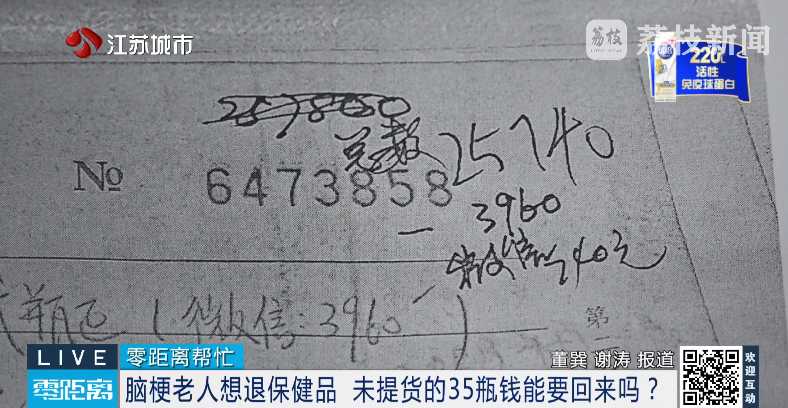 江苏城市
荔枝
荔枝新闻
220
活性
免疫球蛋白
257800
总数 25740
№ 6473858
3960
一
微信 740元
(微信:3960
第
董巽 谢涛 报道
LIVE 零距离帮忙
零距离
脑梗老人想退保健品 未提货的35瓶钱能要回来吗?
欢迎互动